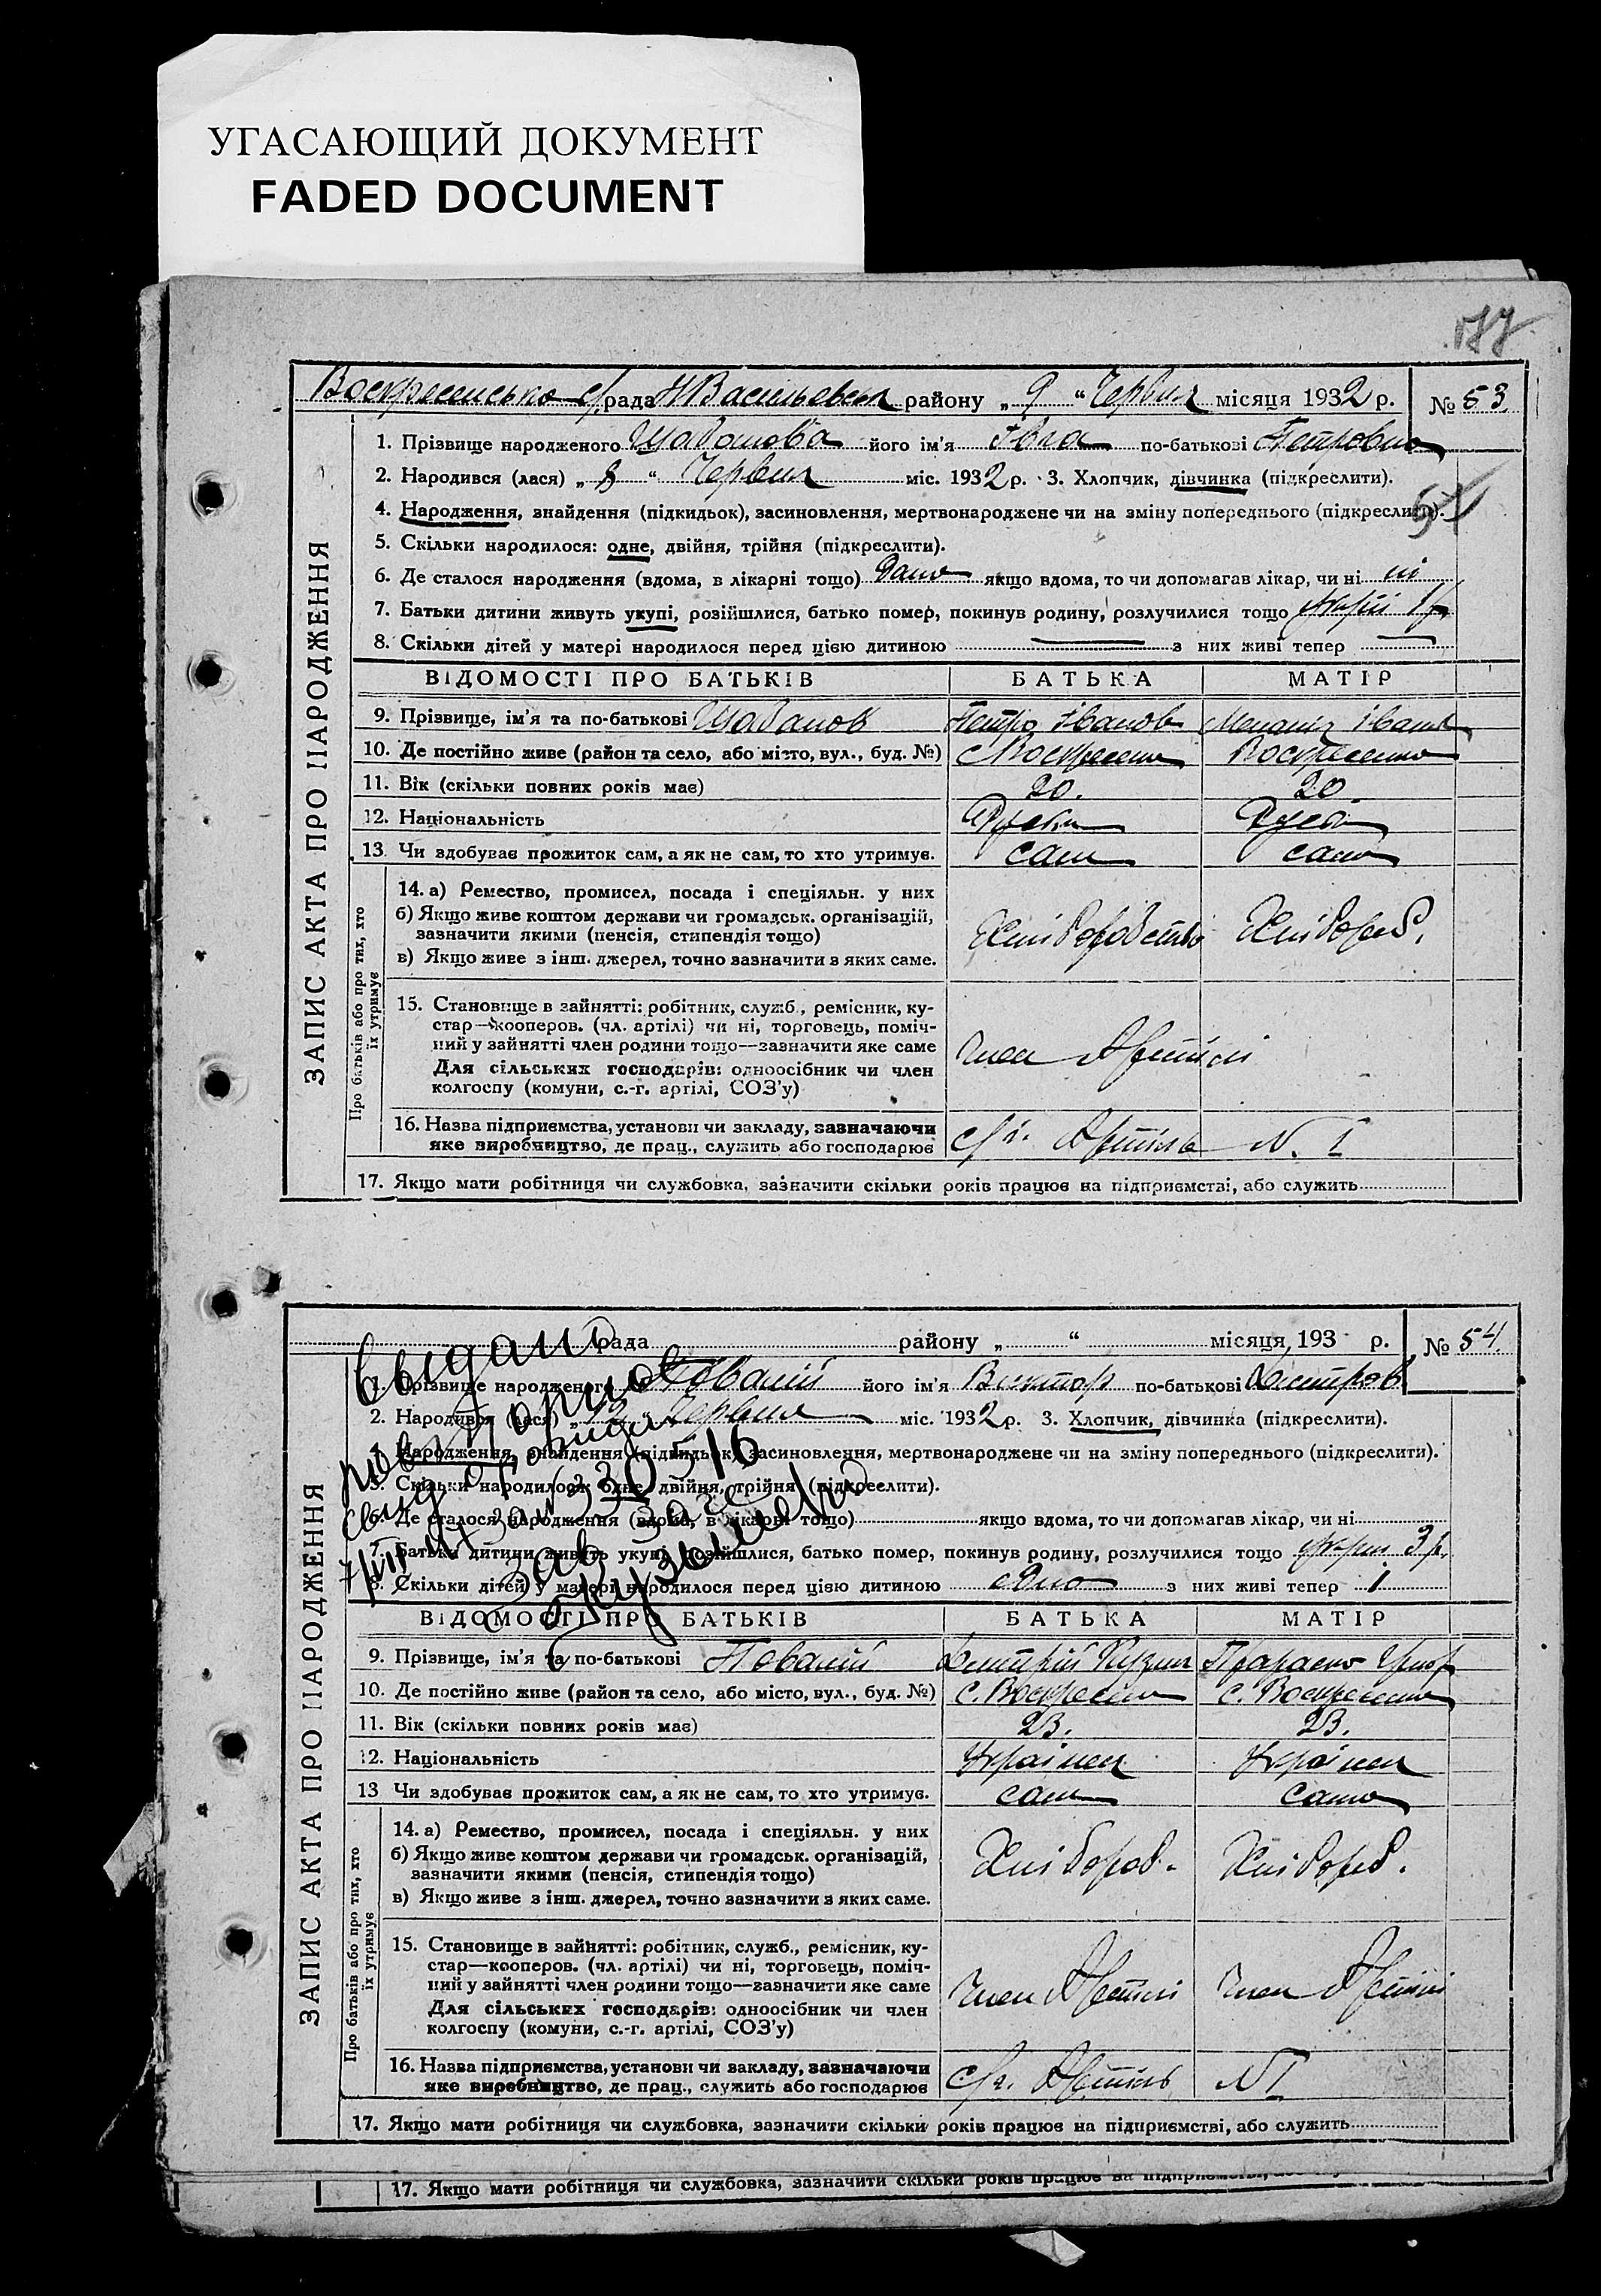 УГАСАЮЩИЙ ДОКУМЕНТ
FADED DOCUMENT
177
Воскресенсько с/рада Н Васильевськ району „ 9 “ Червня місяця 1932 р. № 53
ЗАПИС АКТА ПРО НАРОДЖЕННЯ
1. Прізвище народженого його ім'я по-батькові Петровна
2. Народився (лася) „ 8 “ Червня міс. 1932 р. 3. Хлопчик, дівчинка (підкреслити).
4. Народження, знайдення (підкидьок), засиновлення, мертвонароджене чи на зміну попереднього (підкреслити).
5. Скільки народилося: одне, двійня, трійня (підкреслити).
6. Де сталося народження (вдома, в лікарні тощо) якщо вдома, то чи допомагав лікар, чи ні ні
7. Батьки дитини живуть укупі, розійшлися, батько помер, покинув родину, розлучилися тощо
8. Скільки дітей у матері народилося перед цією дитиною з них живі тепер
ВІДОМОСТІ ПРО БАТЬКІВ БАТЬКА МАТІР
9. Прізвище, ім'я та по-батькові Петро Іванов
10. Де постійно живе (район та село, або місто, вул., буд. №) с Воскресенка Воскресенка
11. Вік (скільки повних років має) 20. 20
12. Національність
13. Чи здобуває прожиток сам, а як не сам, то хто утримує. сам сама
Про батьків або про тих, хто їх утримує
14. а) Ремество, промисел, посада і спеціяльн. у них
б) Якщо живе коштом держави чи громадськ. організацій,
зазначити якими (пенсія, стипендія тощо)
Хліборобство Хлібороб.
в) Якщо живе з інш. джерел, точно зазначити з яких саме.
15. Становище в зайнятті: робітник, служб., ремісник, ку-
стар—кооперов. (чл. артілі) чи ні, торговець, поміч-
ний у зайнятті член родини тощо—зазначити яке саме
член Артілі
Для сільських господарів: одноосібник чи член
колгоспу (комуни, с.-г. артілі, СОЗ'у)
16. Назва підприємства, установи чи закладу, зазначаючи
яке виробництво, де прац., служить або господарює с/г. Артіль N. I
17. Якщо мати робітниця чи службовка, зазначити скільки років працює на підприємстві, або служить
рада району „ “ місяця 193 р. № 54
ЗАПИС АКТА ПРО НАРОДЖЕННЯ
1. Прізвище народженого його ім'я Виктор по-батькові
2. Народився (лася) „ 12 “ Червня міс. 1932 р. 3. Хлопчик, дівчинка (підкреслити).
4. Народження, знайдення (підкидьок), засиновлення, мертвонароджене чи на зміну попереднього (підкреслити).
5. Скільки народилося: одне, двійня, трійня (підкреслити).
6. Де сталося народження (вдома, в лікарні тощо) якщо вдома, то чи допомагав лікар, чи ні
7. Батьки дитини живуть укупі, розійшлися, батько помер, покинув родину, розлучилися тощо
8. Скільки дітей у матері народилося перед цією дитиною одно з них живі тепер 1
ВІДОМОСТІ ПРО БАТЬКІВ БАТЬКА МАТІР
9. Прізвище, ім'я та по-батькові
10. Де постійно живе (район та село, або місто, вул., буд. №) с. Воскресенка с. Воскресенка
11. Вік (скільки повних років має) 23. 23.
12. Національність Українец Українец
13 Чи здобуває прожиток сам, а як не сам, то хто утримує. сам сама
Про батьків або про тих, хто їх утримує
14. а) Ремество, промисел, посада і спеціяльн. у них
б) Якщо живе коштом держави чи громадськ. організацій,
зазначити якими (пенсія, стипендія тощо)
Хлібороб. Хлібороб.
в) Якщо живе з інш. джерел, точно зазначити з яких саме.
15. Становище в зайнятті: робітник, служб., ремісник, ку-
стар—кооперов. (чл. артілі) чи ні, торговець, поміч-
ний у зайнятті член родини тощо—зазначити яке саме
член Артілі член Артілі
Для сільських господарів: одноосібник чи член
колгоспу (комуни, с.-г. артілі, СОЗ'у)
16. Назва підприємства, установи чи закладу, зазначаючи
яке виробництво, де прац., служить або господарює с/г. Артіль N I
17. Якщо мати робітниця чи службовка, зазначити скільки років працює на підприємстві, або служить
17. Якщо мати робітниця чи службовка, зазначити скільки років працює на